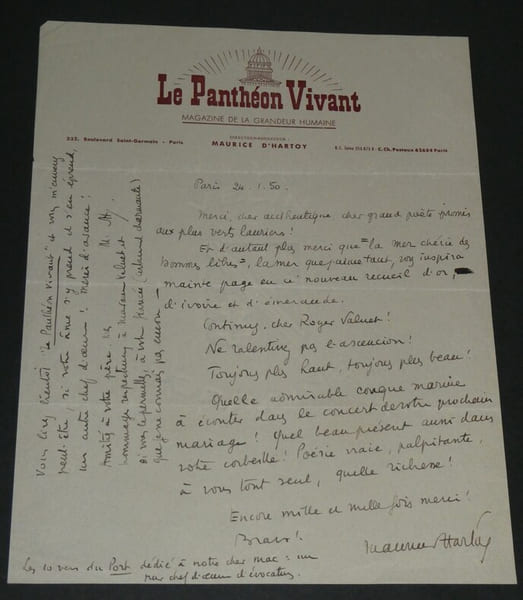 Le Panthéon Vivant
MAGAZINE DE LA GRANDEUR HUMAINE
222, Boulevard Saint-Germain - Paris
DIRECTION-RÉDACTION :
MAURICE D'HARTOY
C. Ch. Postaux 42684 Paris
Paris 24.1.50.
Merci, cher authentique, cher grand poète promis
aux plus verts lauriers !
Et d'autant plus merci que "la mer chérie des
hommes libres", la mer que j'aime tant, vous inspira
mainte page en ce nouveau recueil d'or,
d'ivoire et d'émeraude.
Continuez, cher Roger Valuet !
Ne ralentissez pas l'ascension !
Toujours plus haut, toujours plus beau !
Quelle admirable conque marine
à écouter dans le concert de votre prochain
mariage ! Quel beau présent aussi dans
votre corbeille ! Poésie vraie, palpitante,
à vous tout seul, quelle richesse !
Encore mille et mille fois merci !
Bravo !
Maurice d'Hartoy
Les 10 vers du Port dédié à notre cher mac : un
rare chef d'œuvre d'évocation.
Vous lirez bientôt "Le Panthéon Vivant" et vous m'enverrez
peut-être, si votre âme s'y prend et s'en éprend,
un autre chef d'œuvre ! Merci d'avance !
Amitiés à votre père, mes
hommages respectueux à Madame Valuet et
si vous le permettez, à votre fiancée (sûrement charmante)
que je ne connais pas encore.